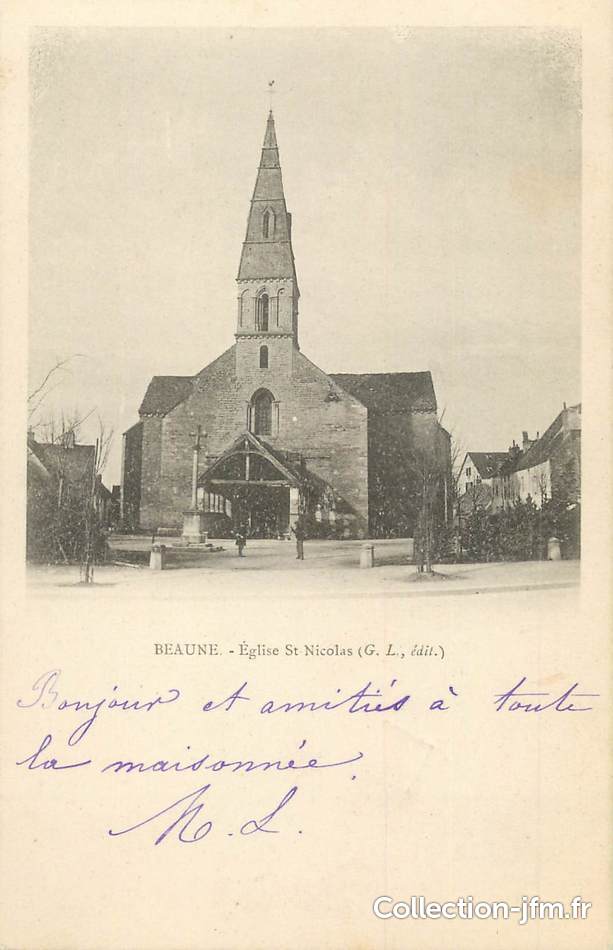 BEAUNE. - Église St-Nicolas (G. L., édit.)
Bonjour et amitiés à toute
la maisonnée.
M. L.
Collection-jfm.fr